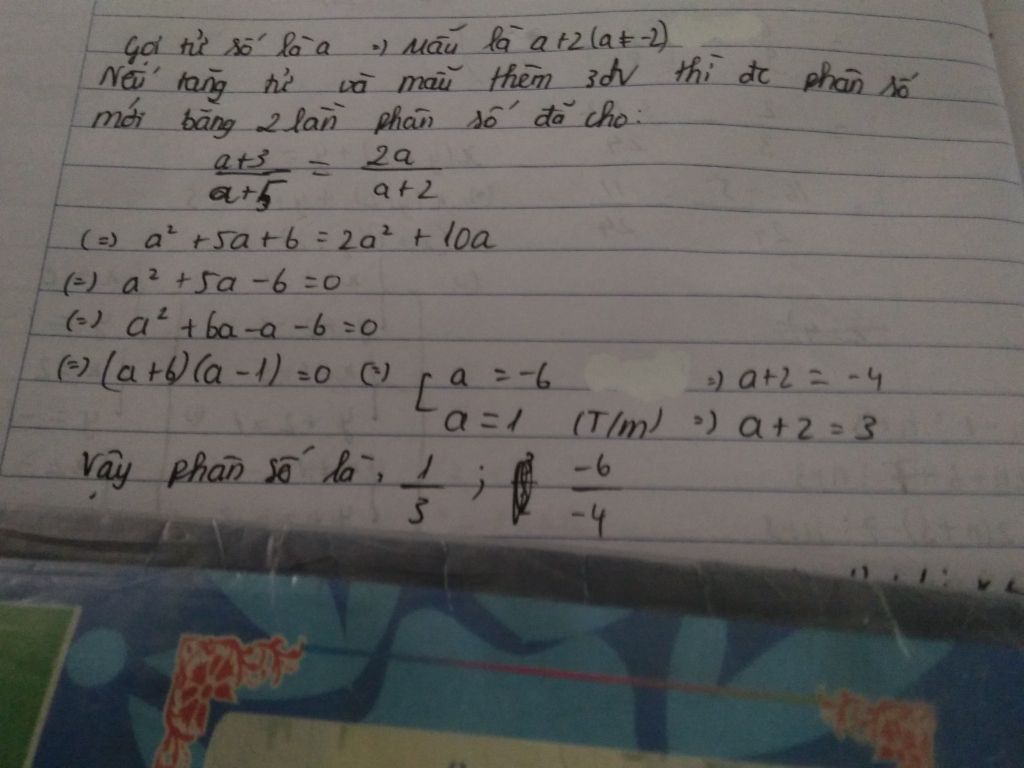 Gọi tử số là a => Mẫu là a+2 (a ≠ -2)
Nếu tăng tử và mẫu thêm 3đv thì đc phân số
mới bằng 2 lần phân số đã cho:
\frac{a+3}{a+5} = \frac{2a}{a+2}
(=) a² + 5a + 6 = 2a² + 10a
(=) a² + 5a - 6 = 0
(=) a² + 6a - a - 6 = 0
(=) (a+6)(a-1) = 0 (=) [ a = -6 => a+2 = -4
a = 1 (T/m) => a+2 = 3
Vậy phân số là, \frac{1}{3} ; \frac{-6}{-4}